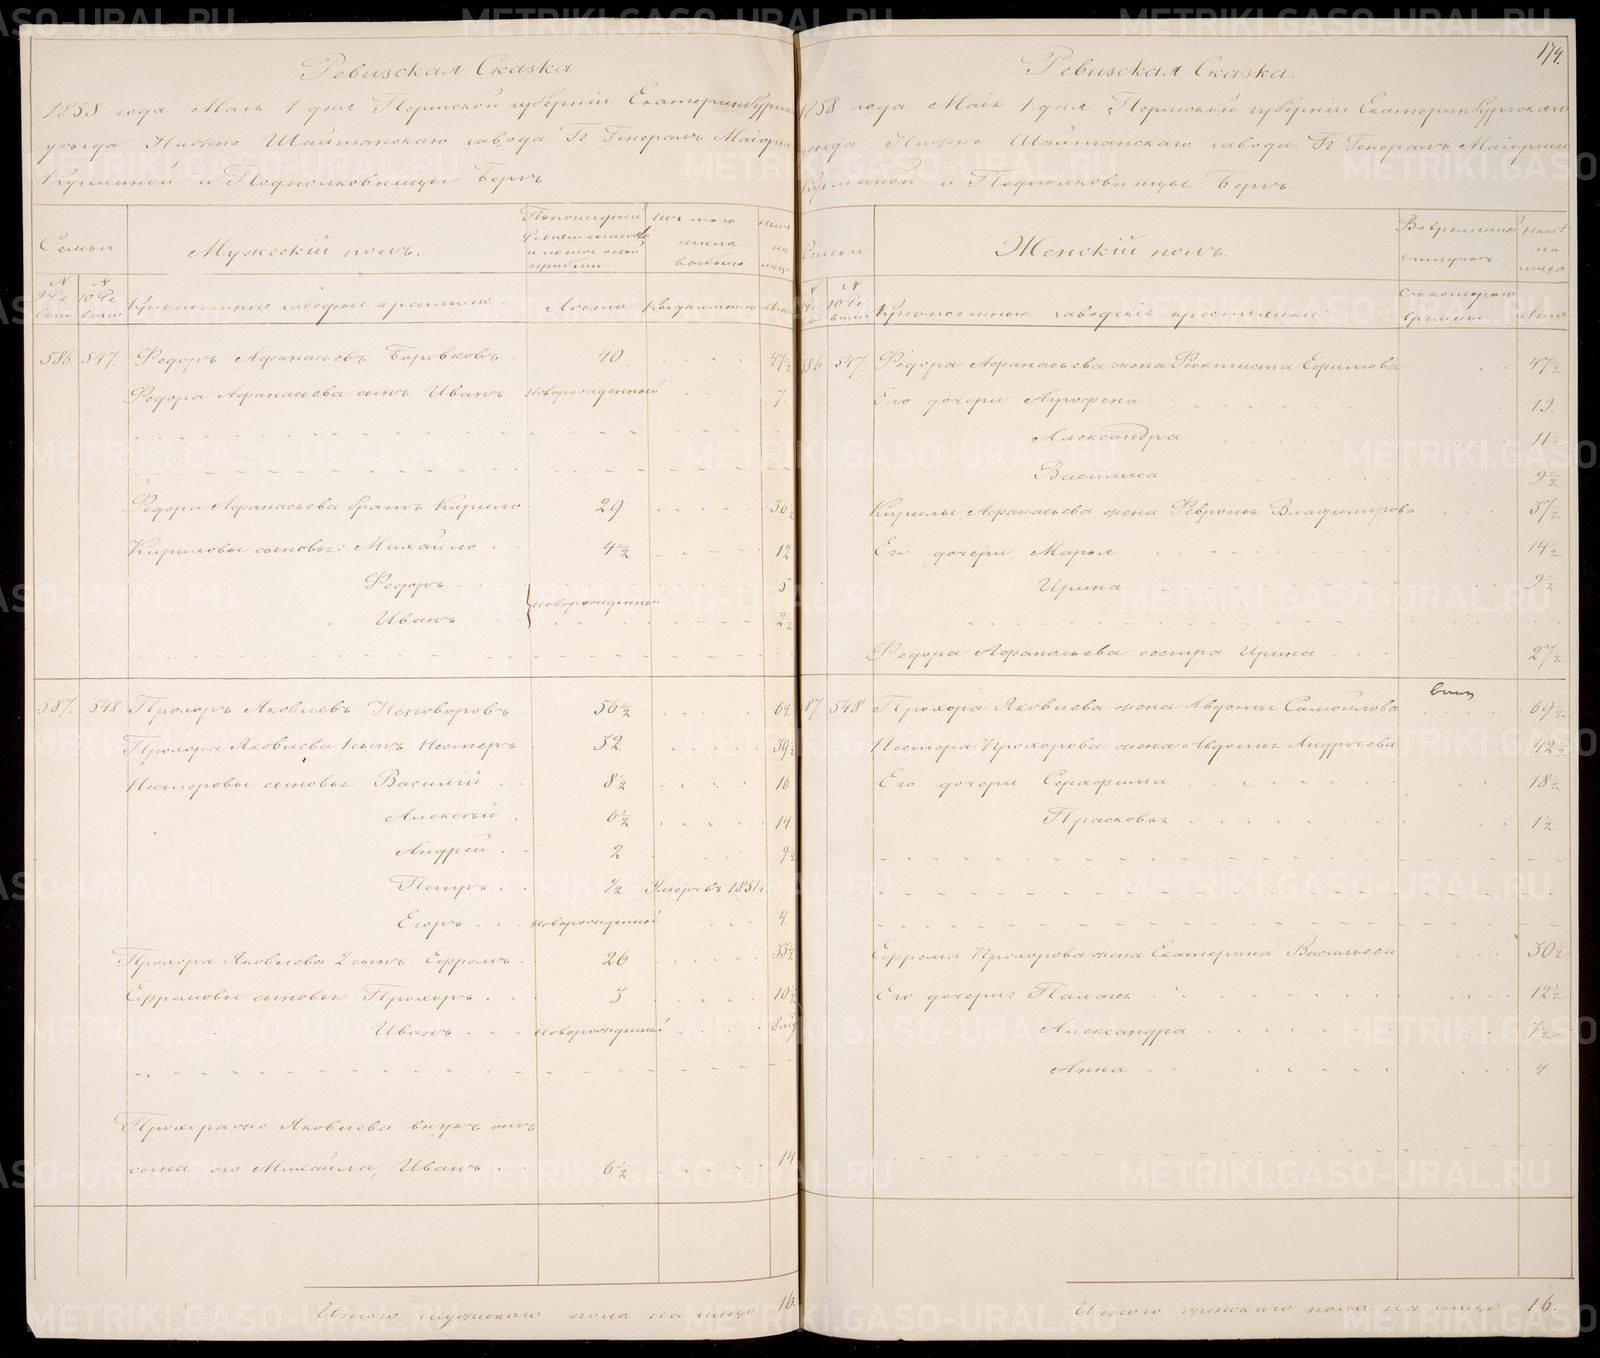 Ревизская Сказка
1858 года Мая 1 дня Пермской губерніи Екатеринбургска
уѣзда Нижне Шайтанскаго завода Гг Генералъ Маіорши
Кузьминой и Подполковницы Бергъ
Семьи
Мужескій полъ.
По последней Ревизіи состояло и после оной прибыло
Изъ того числа выбыло
Ныне на лицо
№ 9 Ре визіи
№ 10 Ре визіи
Крѣпостные заводскіе крестьяне
Лѣта
Когда именно
Лѣта
586 547. Федоръ Афанасьевъ Боровковъ 40 47½
Федора Афанасьева сынъ Иванъ новорожденный 7.
Федора Афанасьева братъ Кирило 29 36½
Кириловы сыновья: Михайло 4½ 12
Федоръ 5
новорожденный
Иванъ 2½
587. 548. Прохоръ Яковлевъ Незговоровъ 56½ 64
Прохора Яковлева 1 сынъ Нестеръ 32 39½
Нестеровы сыновья: Василій 8½ 16
Алексѣй 6½ 14
Андрей 2 9½
Петръ ½ Умеръ въ 1851 г.
Егоръ новорожденный 4.
Прохора Яковлева 2 сынъ Ефремъ 26 33½
Ефремовы сыновья Прохоръ 3 10½
Иванъ новорожденный 8 мѣ
Прохора же Яковлева внукъ отъ
сына его Михайла, Иванъ 6½ 14
Итого мужескаго пола на лицо 16.
174.
Ревизская Сказка.
1858 года Мая 1 дня Пермской губерніи Екатеринбургскаго
уѣзда Нижне Шайтанскаго завода Гг Генералъ Маіорши
Кузьминой и Подполковницы Бергъ.
Семьи
Женскій полъ.
Во временной отлучкѣ
Ныне на лицо
№ 10 Ре визіи
Крѣпостныя заводскія крестьянки
Съ котораго времени
Лѣта
586 547. Федора Афанасьева жена Феоктиста Ефимова 47½
Его дочери Агрофена 19.
Александра 11½
Василиса 9½
Кирилы Афанасьева жена Февронья Владимірова 37½
Его дочери Марья 14½
Ирина 9½
Федора Афанасьева сестра Ирина 27½
587. 548 Прохора Яковлева жена Авдотья Самойлова 69½
Нестера Прохорова жена Авдотья Андреева 42½
Его дочери Серафима 18½
Прасковья 1½
Ефрема Прохорова жена Екатерина Васильева 30½
Его дочери: Палагея 12½
Александра 7½
Анна 4.
Итого женскаго пола на лицо 16.
METRIKI.GASO-URAL.RU